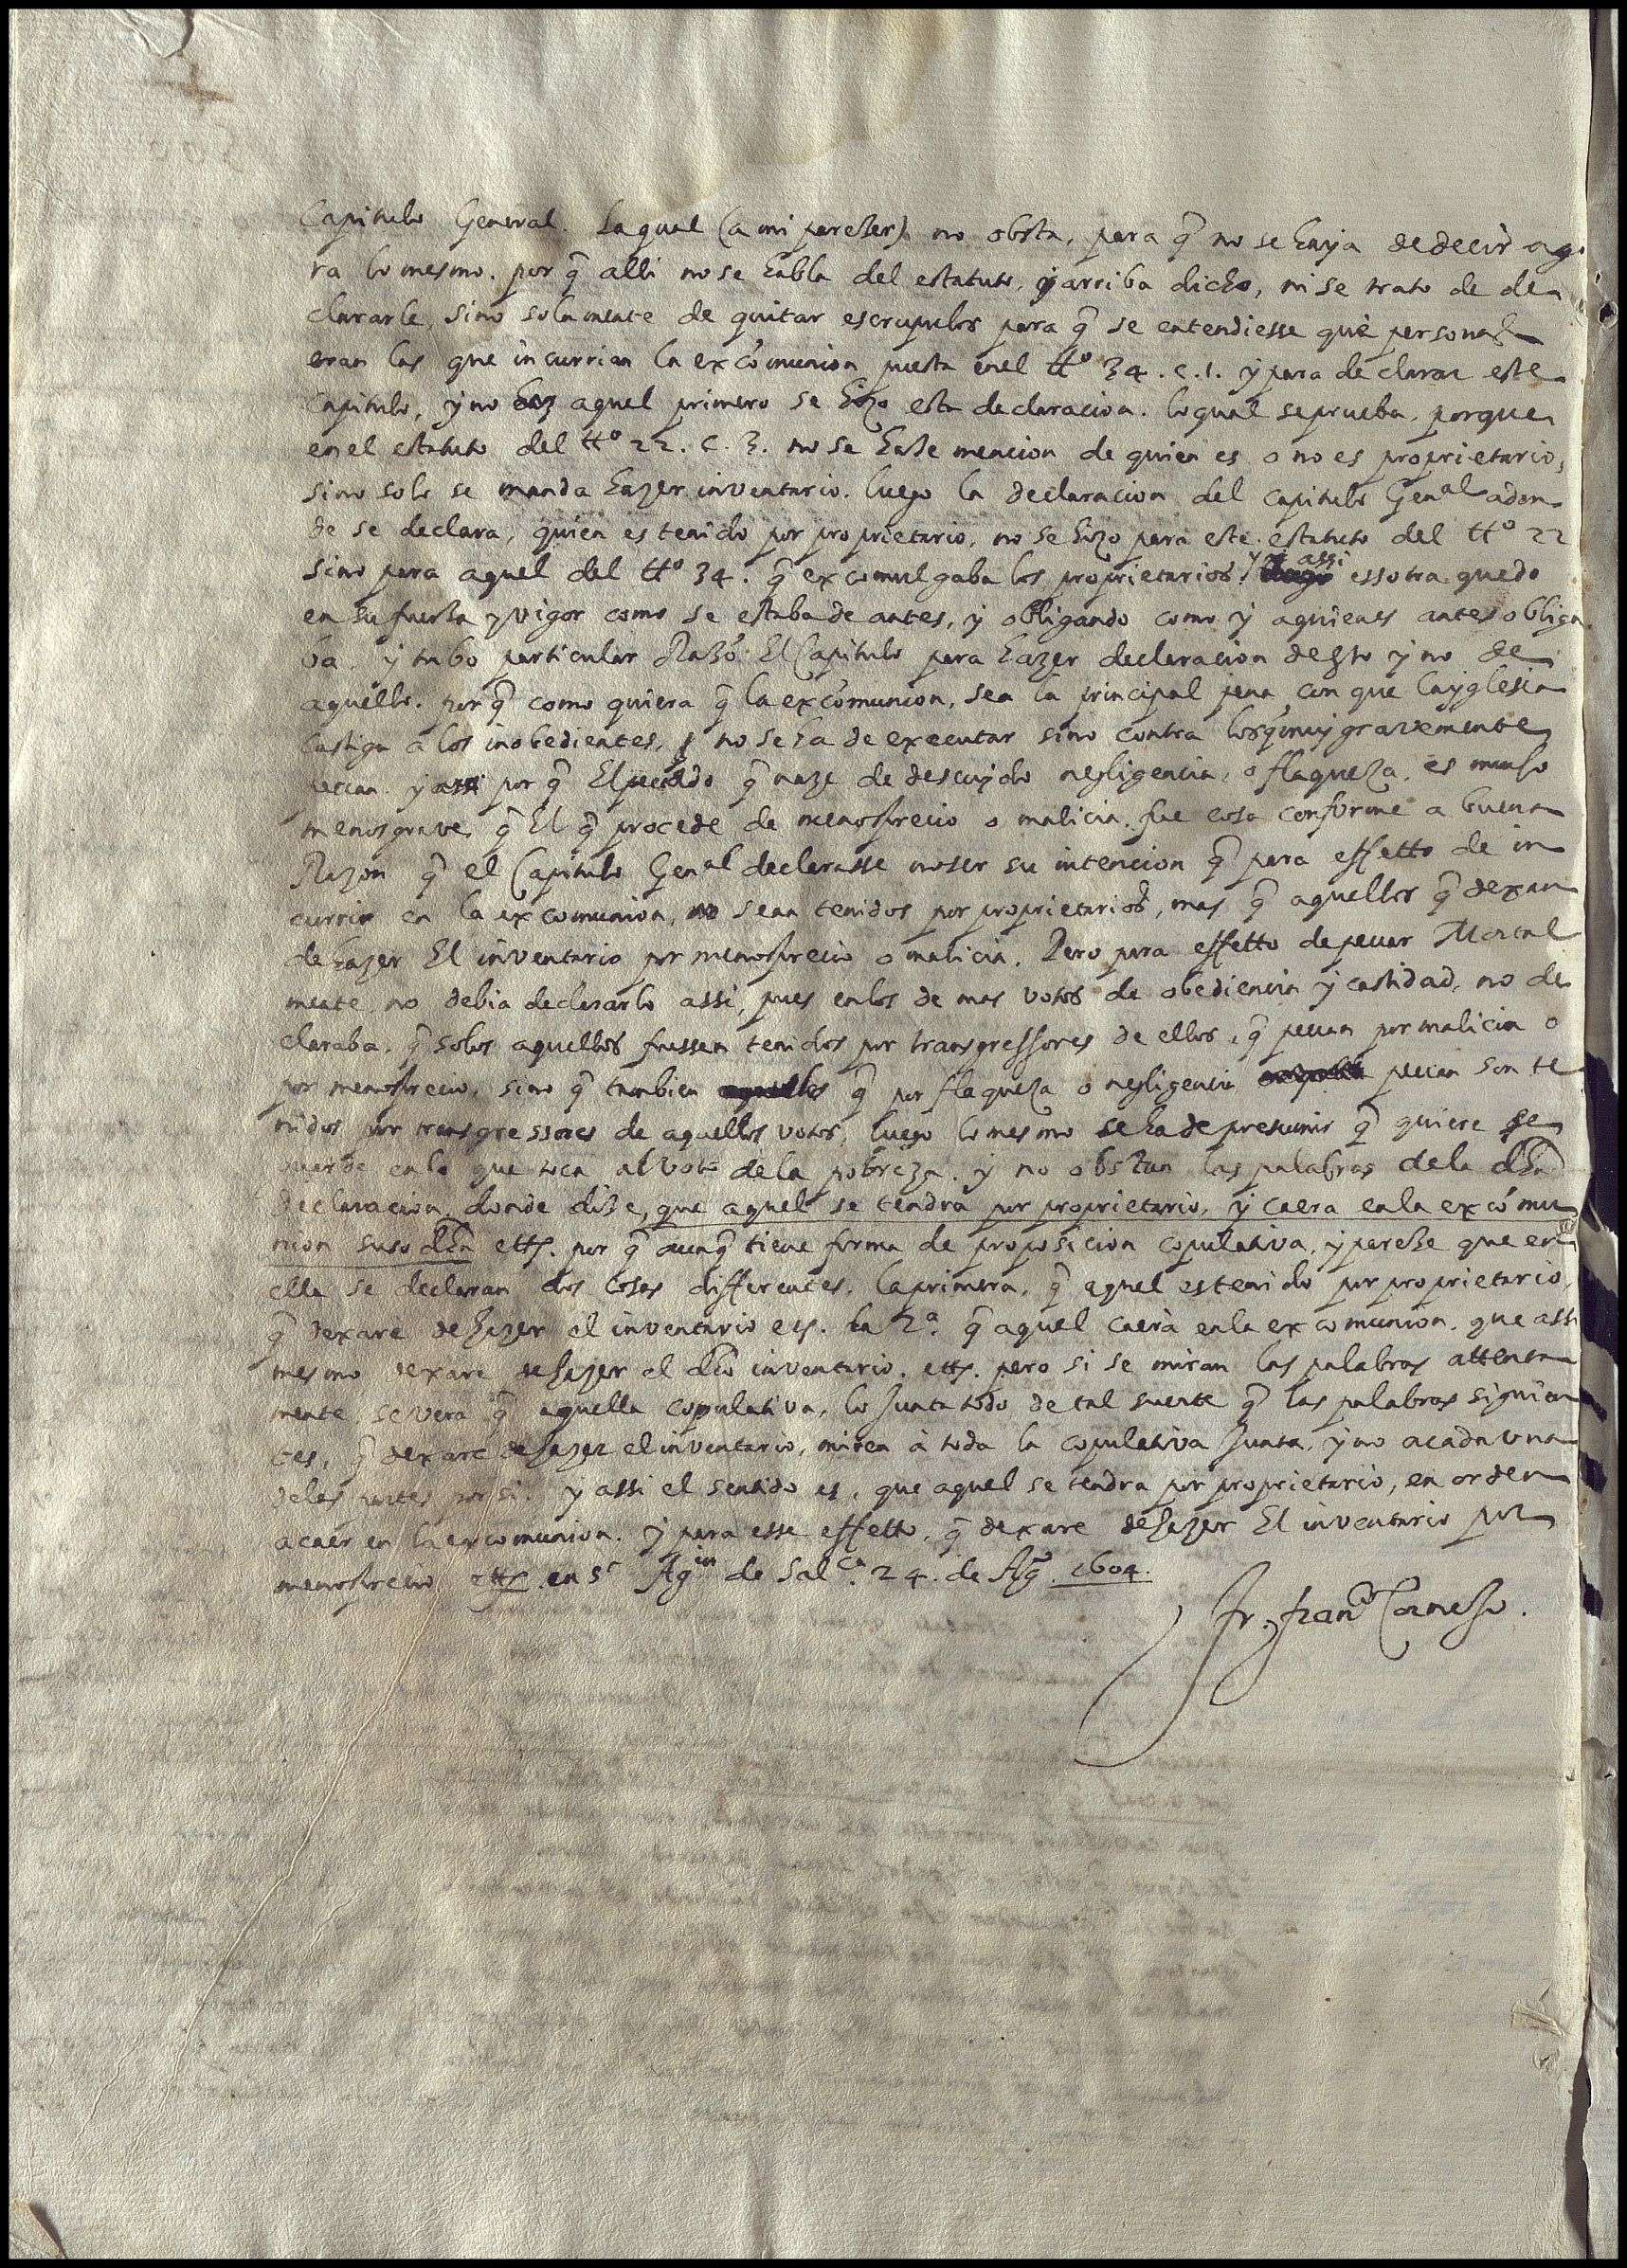 Capitulo General. la qual (a mi pareszer) no obsta, para q̃ no se haya de decir ago
ra lo mesmo. por q̃ alli no se habla del estatuto, arriba dicho, ni se trato de de
clararle, sino solamente de quitar escrupulos para q̃ se entendiesse què personas
eran las que incurrian la excõmunion puesta en el ttº 34. c. 1. y para declarar este
capitulo, y no aquel primero se hizo esta declaracion. lo qual se prueba. porque
en el estatuto del ttº 22. c. 3. no se hasze mencion de quien es o no es proprietario,
sino solo se manda hazer inventario. luego la declaracion del capitulo Genal adon
de se declara, quien es tenido por proprietario, no se hizo para este estatuto del ttº 22
sino para aquel del ttº 34. q̃ excomulgaba los proprietarios. y assi essotra quedo
en su fuersza y vigor como se estaba de antes, y obligando como y a quienes antes obliga
va. y tubo particular Razõ El Capitulo para hazer declaracion desto y no de
aquello. por q̃ como quiera q̃ la excõmunion, sea la principal pena, con que la yglesia
castiga à los inobedientes, no se ha de executar sino contra los q̃ muy gravemente
peccan. y por q̃ El peccado q̃ nasze de descuydo negligencia, o flaquesza, es mucho
menos grave, q̃ El q̃ procede de menosprecio o malicia. fue cosa conforme a buena
Razon q̃ el Capitulo Genal declarasse no ser su intencion q̃ para effetto de in
currir en la excomunion, sean tenidos por proprietarios, mas q̃ aquellos q̃ dexan
de hazer El inventario por menosprecio o malicia. Pero para effetto de peccar Mortal
mente, no debia declararlo assi, pues en los de mas votos de obediencia y castidad, no de
claraba. q̃ solos aquellos fuessen tenidos por transgressores de ellos, q̃ peccan por malicia o
por menosprecio. sino q̃ tambien q̃ por flaquesza o negligencia peccan son te
nidos por transgressores de aquellos votos, luego lo mesmo se ha de presumir q̃ quiere se
guarde en lo que toca al voto de la pobreza. y no obstan las palabras de la dha
declaracion. donde disze, que aquel se tendrà por proprietario, y caera en la excõmu
nion suso dha etts. por q̃ aunq̃ tiene forma de proposicion copulativa. y paresze que en
ella se declaran dos cosas differentes. la primera, q̃ aquel es tenido por proprietario,
q̃ dexare de hazer el inventario ets. la 2ª. q̃ aquel caerà en la excomunion. que assi
mesmo dexare de hazer el dho inventario. etts. pero si se miran las palabras attenta
mente, se vera q̃ aquella copulativa, lo junta todo de tal suerte q̃ las palabras siguien
tes, q̃ dexare de hazer el inventario, miren à toda la copulativa Junta, y no a cada una
de las partes por si. y assi el sentido es, que aquel se tendra por proprietario, en orden
a caer en la excomunion. y para esse effetto, q̃ dexare de hazer El inventario por
menosprecio etts. en St Agin de Salca. 24. de Agº. 1604.
fr. franco Cornejo.